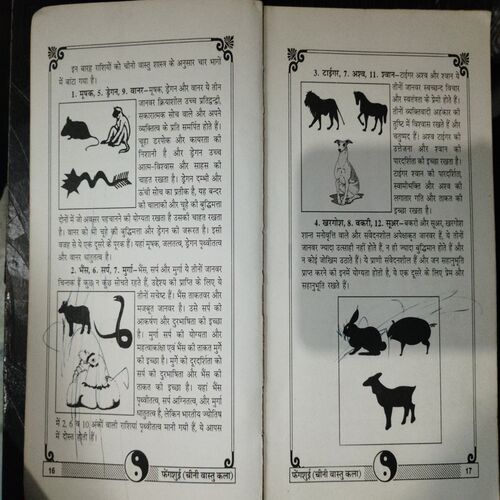 इन बारह राशियों को चीनी वास्तु शास्त्र के अनुसार चार भागों
में बांटा गया है।
1. मूषक, 5. ड्रेगन, 9. वानर–मूषक, ड्रेगन और वानर ये तीन
जानवर क्रियाशील उच्च प्रतिद्वन्द्वी,
सकारात्मक सोच वाले और अपने
व्यक्तित्व के प्रति समर्पित होते हैं।
चूहा डरपोक और कायरता की
निशानी है और ड्रेगन उच्च
आत्म-विश्वास और साहस को
चाहत रखता है। ड्रेगन दम्भी और
ऊंची सोच का प्रतीक है, यह बन्दर
की चालाकी और चूहे की बुद्धिमता
दोनों में जो अवसर पहचानने की योग्यता रखता है उसकी चाहत रखता है।
वानर को भी चूहे की बुद्धिमता और ड्रेगन को जरूरत है। इसी
वजह से ये एक दूसरे के पूरक हैं। यहां मूषक, जलतत्व, ड्रेगन पृथ्वीतत्व
और वानर धातुतत्व है।
2. भैंस, 6. सर्प, 7. मुर्गा–भैंस, सर्प और मुर्गा ये तीनों जानवर
चिन्तक हैं कुछ न कुछ सोचते रहते हैं, उद्देश्य की प्राप्ति के लिए ये
तीनों सचेष्ट हैं। भैंस ताकतवर और
मजबूत जानवर है। उसे सर्प की
आकर्षण और दूरभाषिता की इच्छा
है। मुर्गा सर्प की योग्यता और
महत्वाकांक्षा एवं भैंस की ताकत मुर्गे
की इच्छा है। मुर्गे की दूरदर्शिता को
सर्प की दूरभाषिता और भैंस की
ताकत की इच्छा है। यहां भैंस
पृथ्वीतत्व, सर्प अग्नितत्व, और मुर्गा
धातुतत्व है, लेकिन भारतीय ज्योतिष
में 2, 6 व 10 अंकों वाली राशियां पृथ्वीतत्व मानी गयी हैं, ये आपस
में दोस्त होती हैं।
16
फेंगशुई (चीनी वास्तु कला)
3. टाईगर, 7. अश्व, 11. श्वान–टाईगर अश्व और श्वान ये
तीनों जानवर स्वच्छन्द विचार
और स्वतंत्रता के प्रेमी होते हैं।
तीनों व्यक्तिवादी अहंकार की
तुष्टि में विश्वास रखते हैं और
चतुष्पद हैं। अश्व टाईगर की
उत्तेजना और श्वान की
पारदर्शिता की इच्छा रखता है।
टाईगर श्वान की पारदर्शिता,
स्वामीभक्ति और अश्व की
लगातार गति और ताकत की
इच्छा रखता है।
4. खरगोश, 8. बकरी, 12. सूअर–बकरी और सूअर, खरगोश
शान्त मनोवृत्ति वाले और संवेदनशील अपेक्षाकृत जानवर हैं, ये तीनों
जानवर ज्यादा उत्साही नहीं होते हैं, न ही ज्यादा बुद्धिमान होते हैं और
न कोई जोखिम उठाते हैं। ये प्राणी संवेदनशील हैं और जन सहानुभूति
प्राप्त करने की इनमें योग्यता होती है, ये एक दूसरे के लिए प्रेम और
सहानुभूति रखते हैं।
फेंगशुई (चीनी वास्तु कला)
17